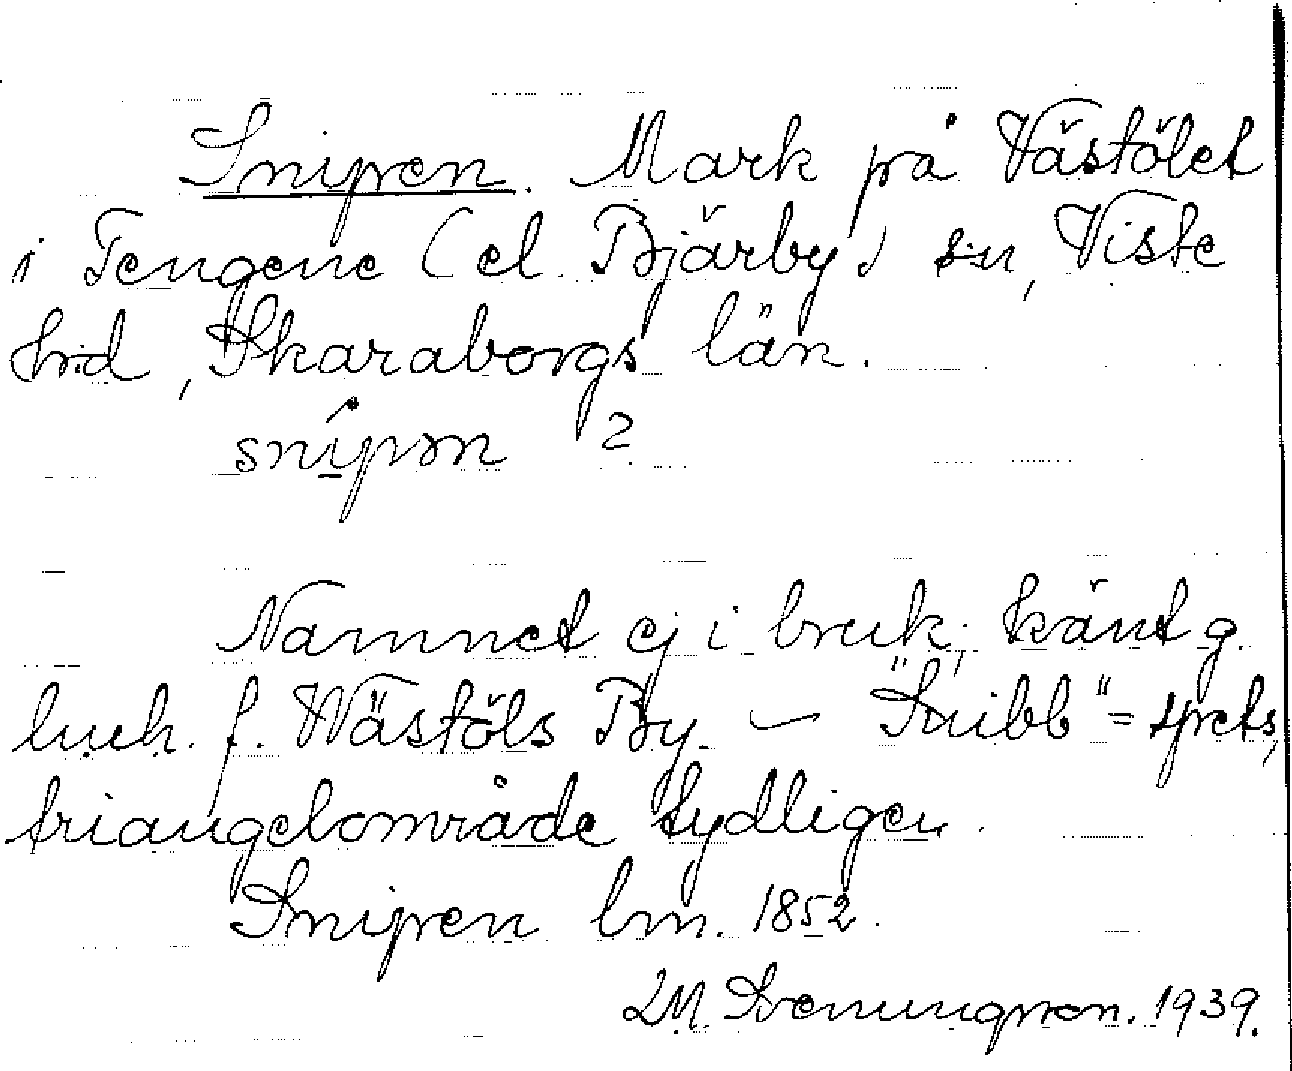 Snipen. Mark på Västölet
i Tengene (el. Bjärby) sn, Viste
hrd, Skaraborgs län.
snípən ?
Namnet ej i bruk; känt g.
luch. f. Wästöls By. — "Snibb" = spets,
triangelområde tydligen.
Snipen lm. 1852.
LM. Svenungsson. 1939.